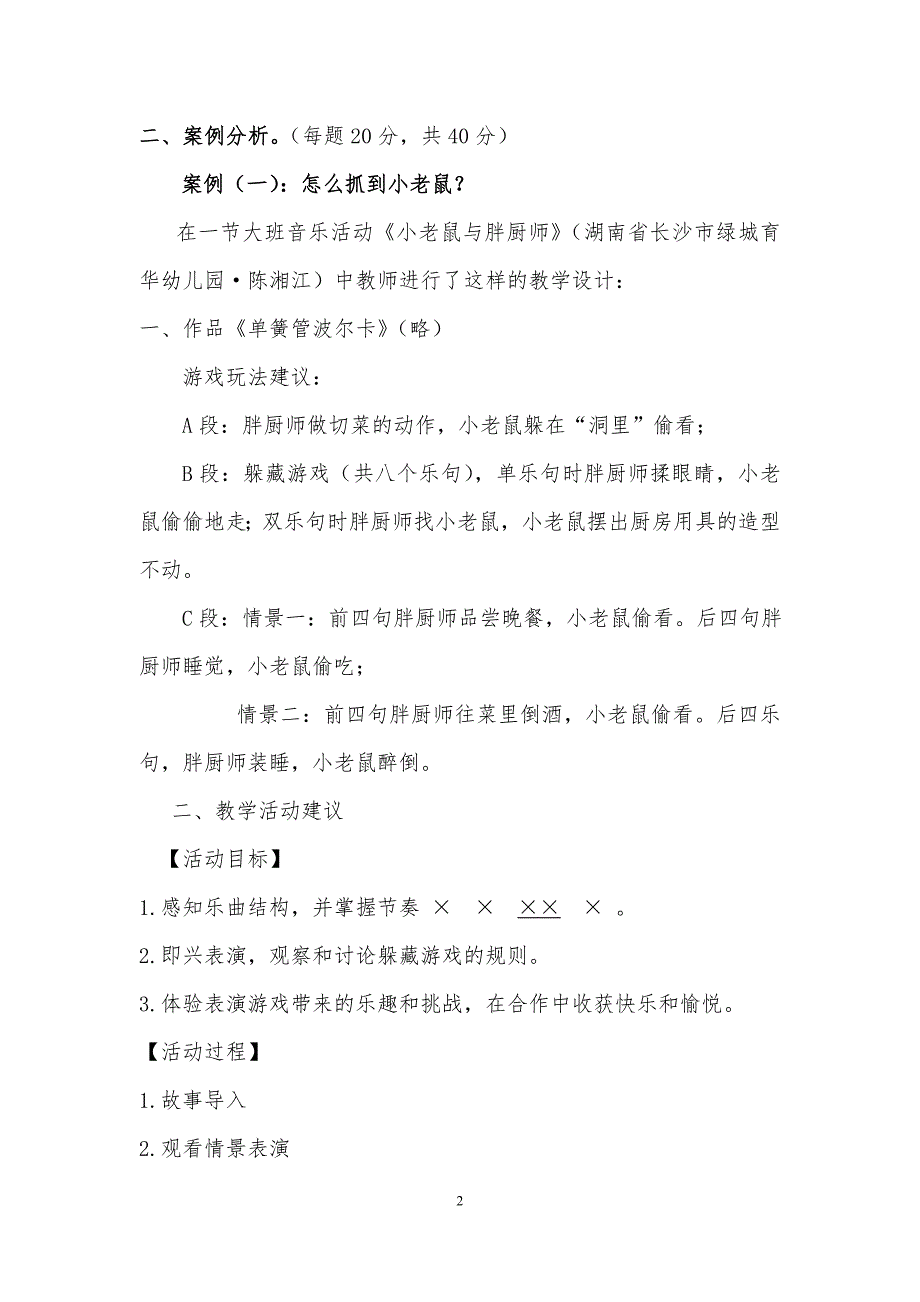 二、案例分析。（每题20分，共40分）
案例（一）：怎么抓到小老鼠？
在一节大班音乐活动《小老鼠与胖厨师》（湖南省长沙市绿城育
华幼儿园·陈湘江）中教师进行了这样的教学设计：
一、作品《单簧管波尔卡》（略）
游戏玩法建议：
A段：胖厨师做切菜的动作，小老鼠躲在“洞里”偷看；
B段：躲藏游戏（共八个乐句），单乐句时胖厨师揉眼睛，小老
鼠偷偷地走；双乐句时胖厨师找小老鼠，小老鼠摆出厨房用具的造型
不动。
C段：情景一：前四句胖厨师品尝晚餐，小老鼠偷看。后四句胖
厨师睡觉，小老鼠偷吃；
情景二：前四句胖厨师往菜里倒酒，小老鼠偷看。后四乐
句，胖厨师装睡，小老鼠醉倒。
二、教学活动建议
【活动目标】
1.感知乐曲结构，并掌握节奏 × × ×× × 。
2.即兴表演，观察和讨论躲藏游戏的规则。
3.体验表演游戏带来的乐趣和挑战，在合作中收获快乐和愉悦。
【活动过程】
1.故事导入
2.观看情景表演
2